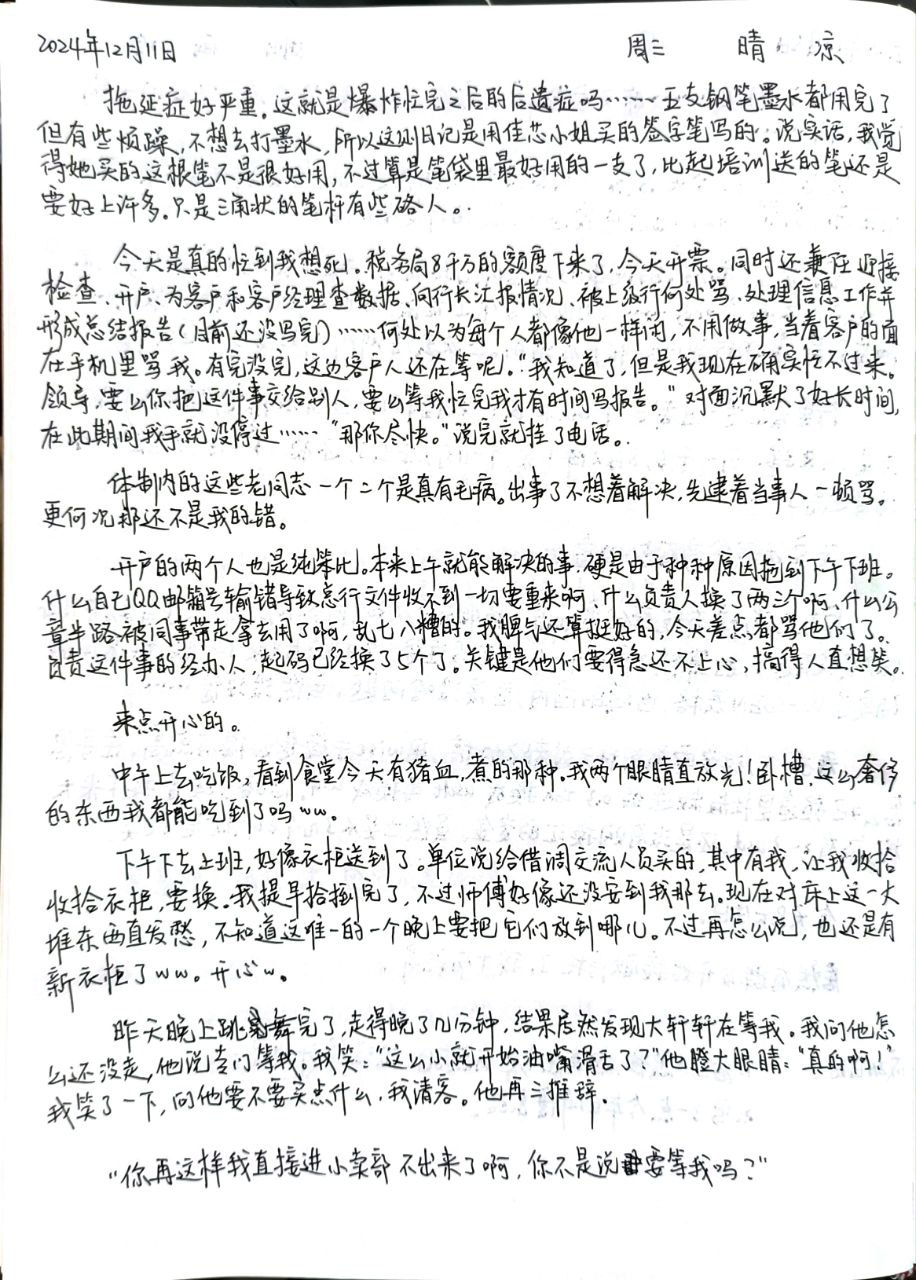 2024年12月11日 周三 晴 凉
拖延症好严重。这就是爆炸忙完之后的后遗症吗……五支钢笔墨水都用完了
但有些烦躁，不想去打墨水，所以这则日记是用佳芯小姐买的签字笔写的。说实话，我觉
得她买的这根笔不是很好用，不过算是笔袋里最好用的一支了，比起培训送的笔还是
要好上许多。只是三角状的笔杆有些硌人。
今天是真的忙到我想死。税务局8千万的额度下来了，今天开票。同时还兼任迎接
检查、开户、为客户和客户经理查数据、向行长汇报情况、被上级行何处骂、处理信息工作并
形成总结报告(目前还没写完)……何处以为每个人都像他一样闲，不用做事，当着客户的面
在手机里骂我。有完没完，这边客户人还在等呢。"我知道了，但是我现在确实忙不过来。
领导，要么你把这件事交给别人，要么等我忙完我才有时间写报告。"对面沉默了好长时间，
在此期间我手就没停过……"那你尽快。"说完就挂了电话。
体制内的这些老同志一个二个是真有毛病。出事了不想着解决，先逮着当事人一顿骂。
更何况那还不是我的错。
开户的两个人也是纯笨比。本来上午就能解决的事，硬是由于种种原因拖到下午下班。
什么自己QQ邮箱号输错导致总行文件收不到一切要重来啊、什么负责人换了两三个啊、什么公
章半路被同事带走拿去用了啊，乱七八糟的。我脾气还算挺好的，今天差点都骂他们了。
负责这件事的经办人，起码已经换了5个了。关键是他们要得急还不上心，搞得人直想笑。
来点开心的。
中午上去吃饭，看到食堂今天有猪血，煮的那种。我两个眼睛直放光！卧槽，这么奢侈
的东西我都能吃到了吗ww。
下午下去上班，好像衣柜送到了。单位说给借调交流人员买的，其中有我，让我收拾
收拾衣柜，要换。我提早拾掇完了，不过师傅好像还没安到我那去。现在对床上这一大
堆东西直发愁，不知道这唯一的一个晚上要把它们放到哪儿。不过再怎么说，也还是有
新衣柜了ww。开心w。
昨天晚上跳舞完了，走得晚了几分钟，结果居然发现大轩轩在等我。我问他怎
么还没走，他说专门等我。我笑："这么小就开始油嘴滑舌了？"他瞪大眼睛："真的啊！"
我笑了一下，问他要不要买点什么，我请客。他再三推辞。
"你再这样我直接进小卖部不出来了啊，你不是说要等我吗？"